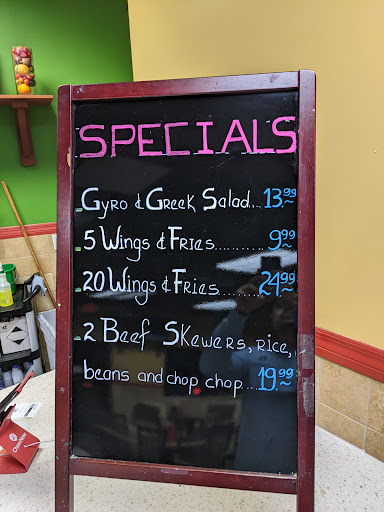 SPECIALS
Gyro & Greek Salad... 13.99
5 Wings & Fries........... 9.99
20 Wings & Fries........ 24.99
2 Beef Skewers, rice,
beans and chop chop... 19.99